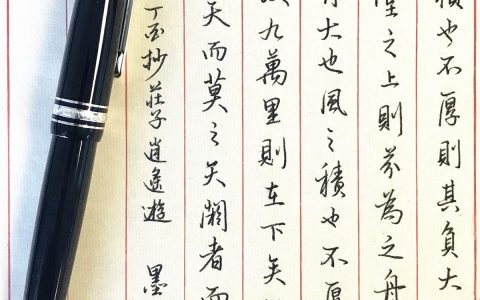 積也不厚則其負大
堂之上則芥為之舟
舟大也風之積也不厚
故九萬里則在下矣
天而莫之夭閼者而
丁酉抄莊子逍遙遊 墨